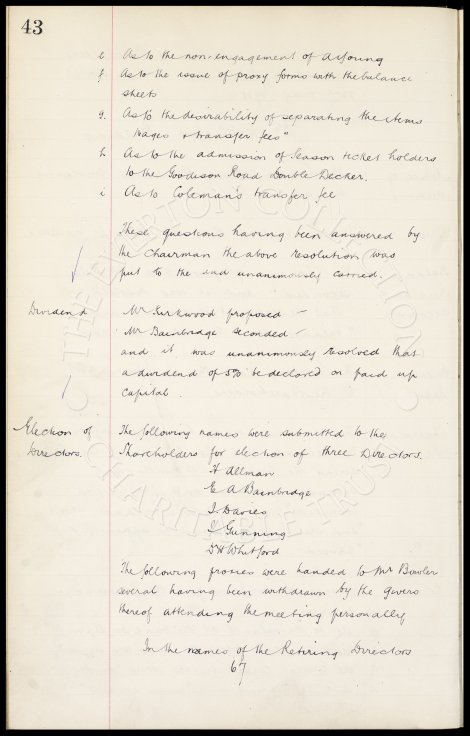 43
e As to the non-engagement of A. Young
f As to the issue of proxy forms with the balance
sheets
g. As to the desirability of separating the items
"wages & transfer fees"
h As to the admission of Season ticket holders
to the Goodison Road Double Decker.
i As to Coleman's transfer fee
These questions having been answered by
the Chairman the above resolution was
put to the and unanimously carried.
Dividend Mr Kirkwood proposed -
Mr Bainbridge seconded -
and it was unanimously resolved that
a dividend of 5% be declared on paid up
Capital.
Election of The following names were submitted to the
Directors. Shareholders for election of three Directors.
H Allman
E A Bainbridge
J. Davies
Gunning
Dr Whitford
The following proxies were handed to Mr Bowler
several having been withdrawn by the givers
thereof attending the meeting personally
In the names of the Retiring Directors
67
© THE EVERTON COLLECTION
CHARITABLE TRUST